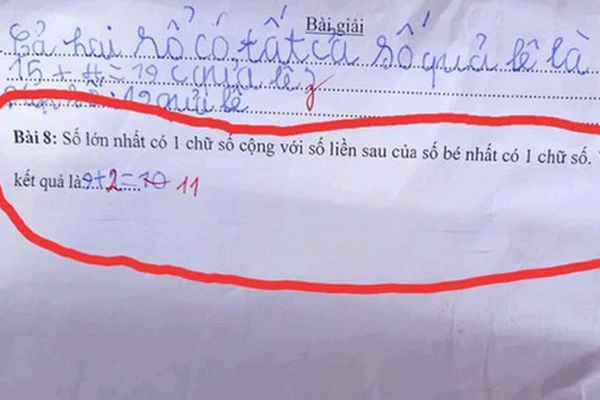 Bài giải
Cả hai rổ có, tất cả số quả lê là
15 + 4 = 19 (quả lê)
19 quả lê
Bài 8: Số lớn nhất có 1 chữ số cộng với số liền sau của số bé nhất có 1 chữ số.
kết quả là 9+2=10 11